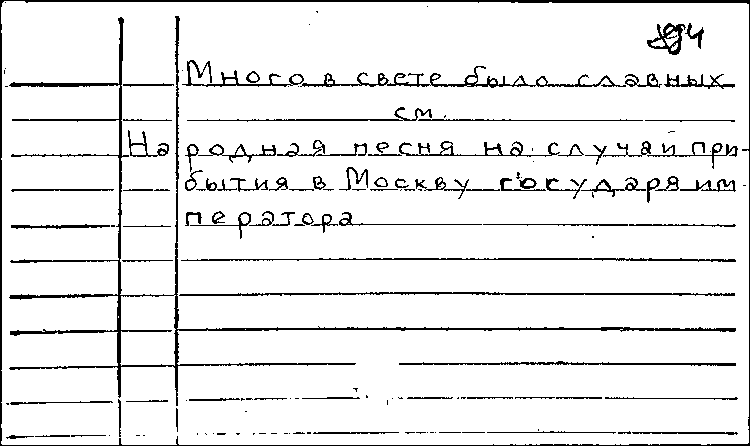 Много в свете было славных
см.
Народная песня на случай при-
бытия в Москву государя им-
ператора